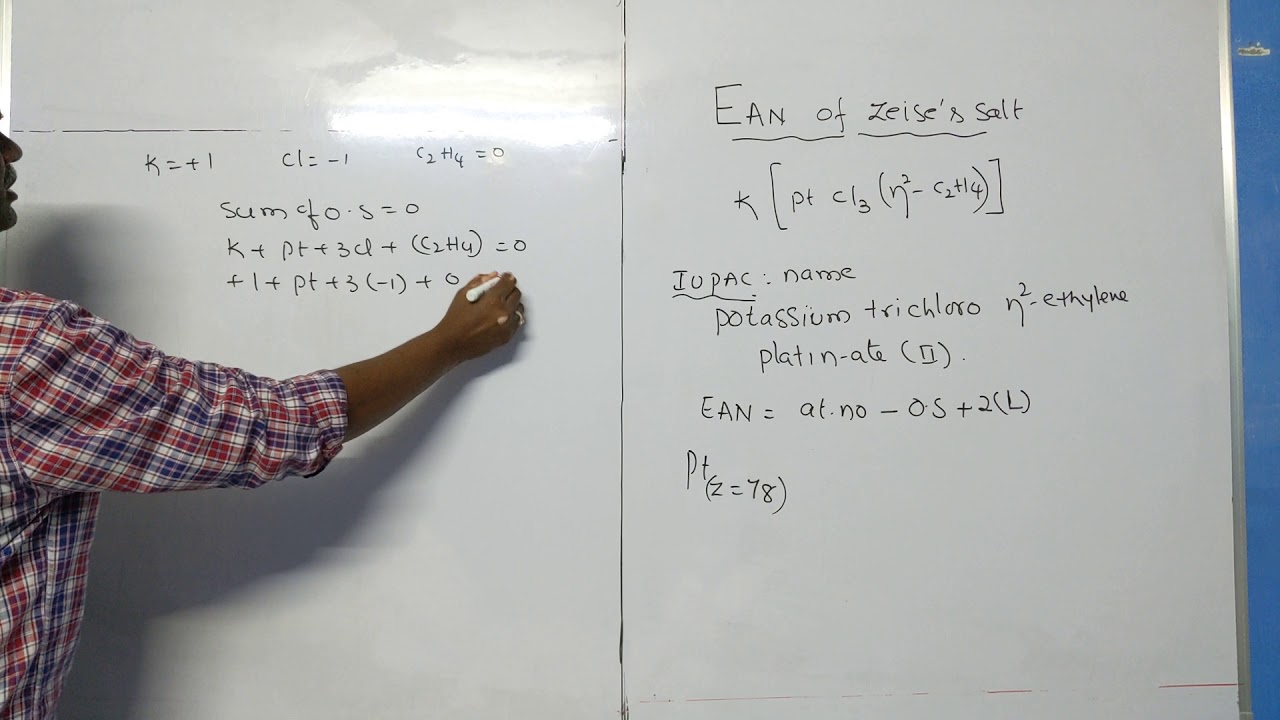 K = +1 Cl = -1 C2H4 = 0
Sum of O.S = 0
K + Pt + 3Cl + (C2H4) = 0
+1 + Pt + 3(-1) + 0
EAN of Zeise's Salt
K [Pt Cl3 (η²- C2H4)]
IUPAC : name
potassium trichloro η²-ethylene
platin-ate (II).
EAN = at.no - O.S + 2(L)
Pt(Z=78)